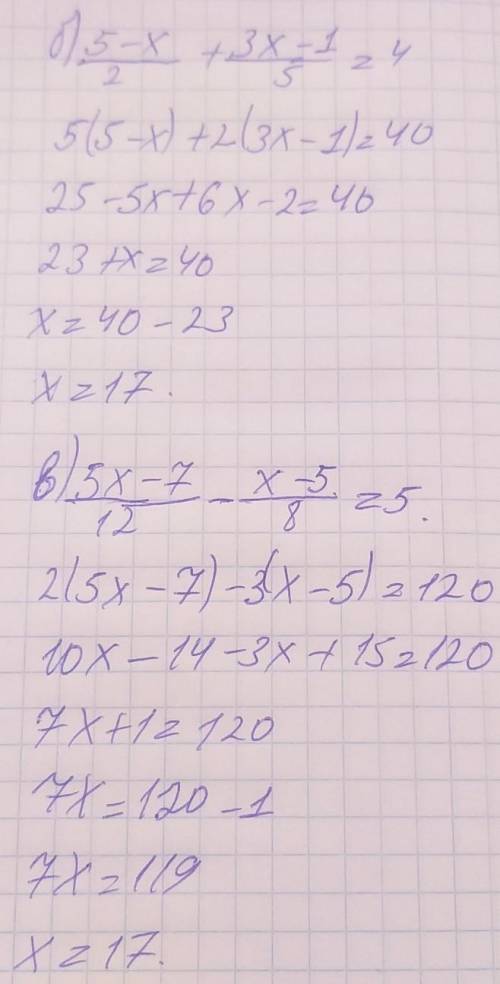 б) (5-x)/2 + (3x-1)/5 = 4
5(5-x)+2(3x-1)=40
25-5x+6x-2=40
23+x=40
x=40-23
x=17.
в) (5x-7)/12 - (x-5)/8 = 5.
2(5x-7)-3(x-5)=120
10x-14-3x+15=120
7x+1=120
7x=120-1
7x=119
x=17.